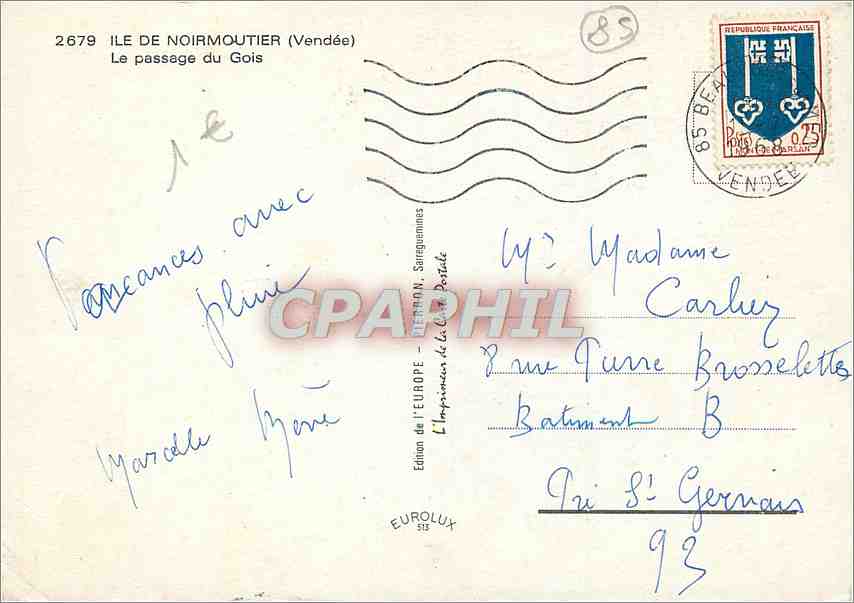 2679 ILE DE NOIRMOUTIER (Vendée)
Le passage du Gois
85
REPUBLIQUE FRANÇAISE
POSTES 0,25
MONT-DE-MARSAN
85 BEAU
1968
VENDEE
1 €
Vacances avec
pluie
Marcelle René
CPAPHIL
Edition de l'EUROPE - PIERRON, Sarreguemines
L'Imprimeur de la Carte Postale
EUROLUX
513
Mr Madame
8 rue Pierre Brosselette
Batiment B
Pré St Gervais
93